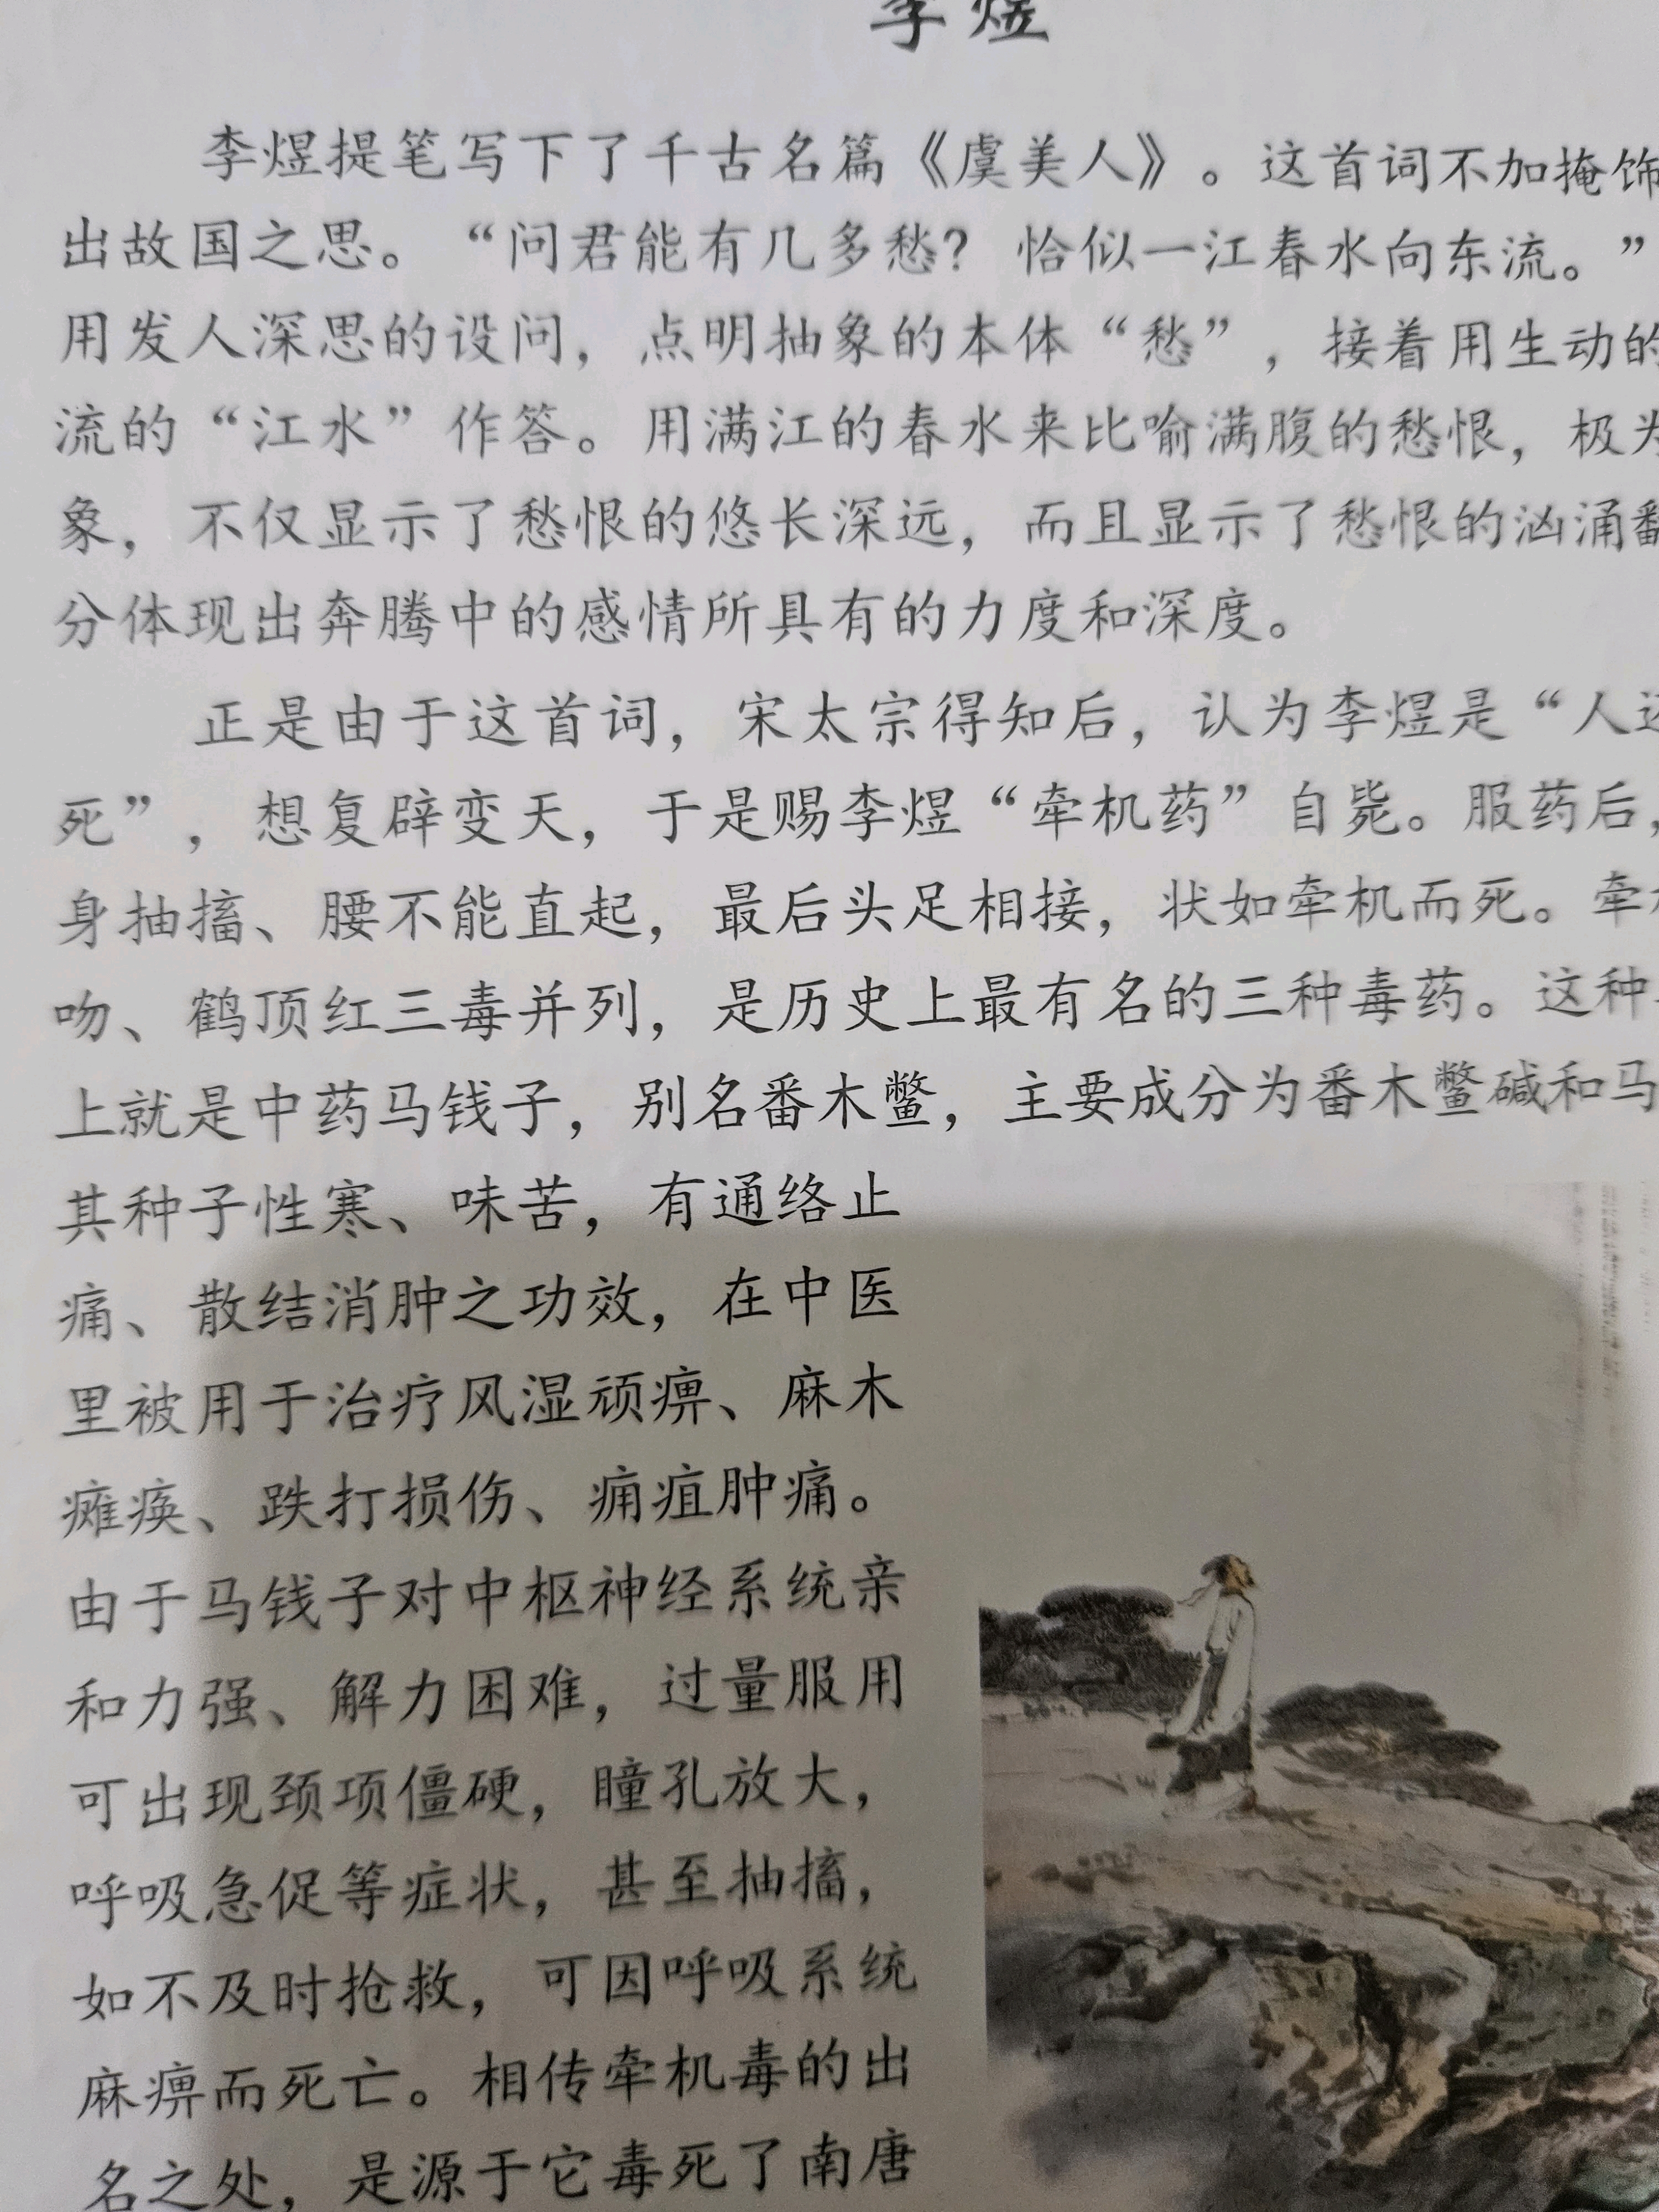 李煜
李煜提笔写下了千古名篇《虞美人》。这首词不加掩饰
出故国之思。“问君能有几多愁？恰似一江春水向东流。”
用发人深思的设问，点明抽象的本体“愁”，接着用生动的
流的“江水”作答。用满江的春水来比喻满腹的愁恨，极为
象，不仅显示了愁恨的悠长深远，而且显示了愁恨的汹涌翻
分体现出奔腾中的感情所具有的力度和深度。
正是由于这首词，宋太宗得知后，认为李煜是“人还
死”，想复辟变天，于是赐李煜“牵机药”自毙。服药后，
身抽搐、腰不能直起，最后头足相接，状如牵机而死。牵机
吻、鹤顶红三毒并列，是历史上最有名的三种毒药。这种
上就是中药马钱子，别名番木鳖，主要成分为番木鳖碱和马
其种子性寒、味苦，有通络止
痛、散结消肿之功效，在中医
里被用于治疗风湿顽痹、麻木
瘫痪、跌打损伤、痈疽肿痛。
由于马钱子对中枢神经系统亲
和力强、解力困难，过量服用
可出现颈项僵硬，瞳孔放大，
呼吸急促等症状，甚至抽搐，
如不及时抢救，可因呼吸系统
麻痹而死亡。相传牵机毒的出
名之处，是源于它毒死了南唐